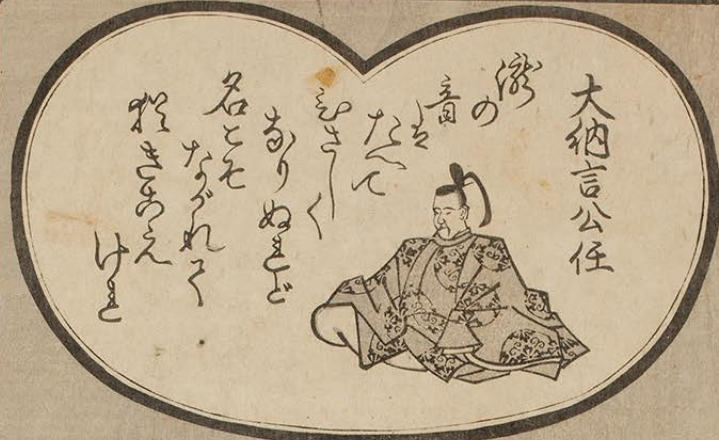 大納言公任
瀧の
音は
たへて
ひさしく
なりぬれど
名こそ
ながれて
猶きこえ
けれ